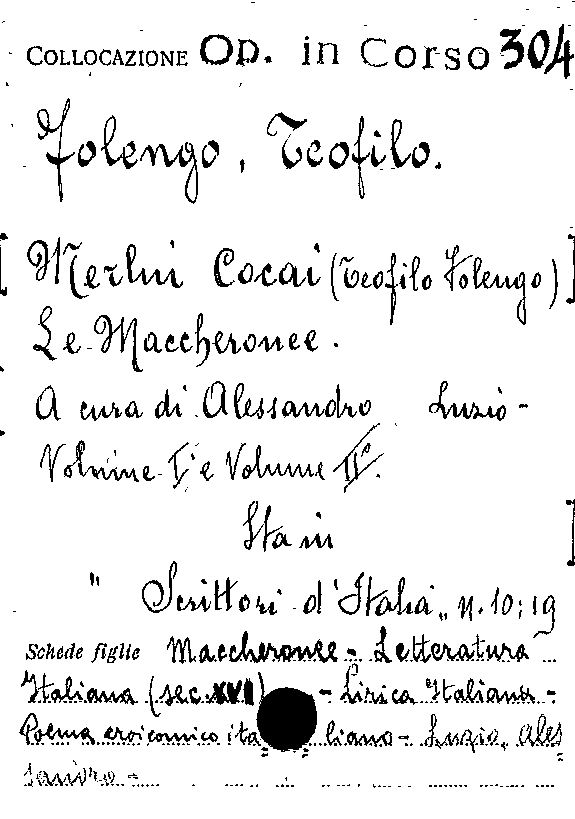 COLLOCAZIONE Op. in Corso 304
Folengo, Teofilo.
[Merlni Cocai (Teofilo Folengo)]
Le Maccheronee.
A cura di Alessandro Luzio -
Volume I° e Volume II°.
Sta in ]
" Scrittori d'Italia „ n. 10; 19
Schede figlie Maccheronee - Letteratura
Italiana (sec. XVI) - Lirica Italiana -
Poema eroicomico italiano - Luzio, Ales
sandro -